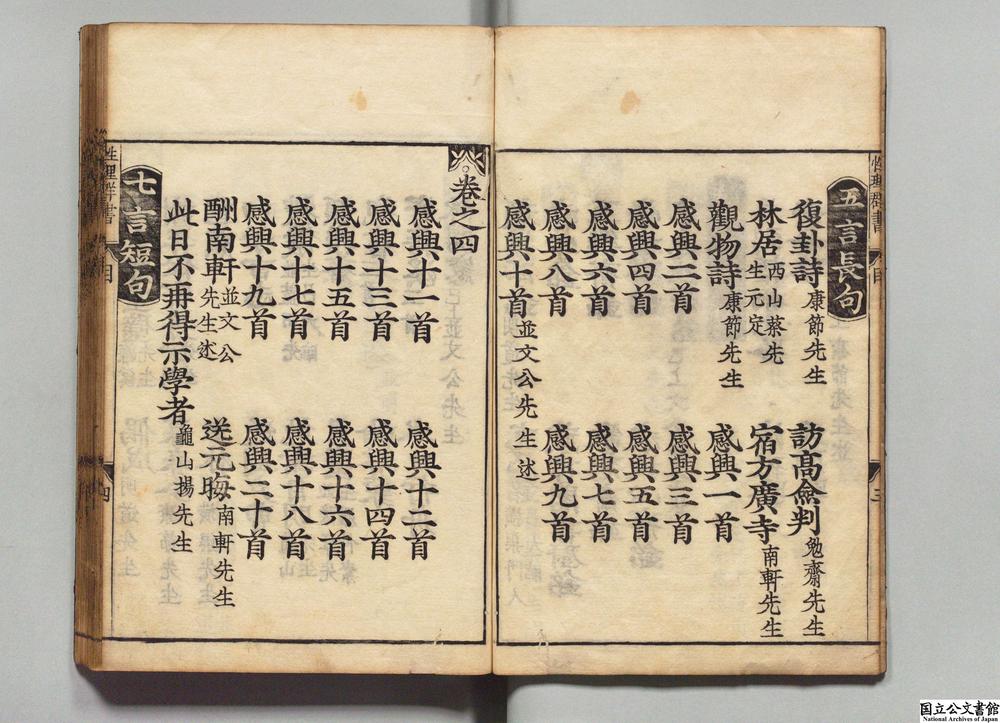 性理群書
五言長句
復卦詩康節先生 訪高僉判勉齋先生
林居西山蔡先生元定 宿方廣寺南軒先生
觀物詩康節先生 感興一首
感興二首 感興三首
感興四首 感興五首
感興六首 感興七首
感興八首 感興九首
感興十首並文公先生述
卷之四
感興十一首 感興十二首
感興十三首 感興十四首
感興十五首 感興十六首
感興十七首 感興十八首
感興十九首 感興二十首
酬南軒並文公先生述 送元晦南軒先生
此日不再得示學者龜山揚先生
七言短句
性理群書
目
三
四
国立公文書館
National Archives of Japan